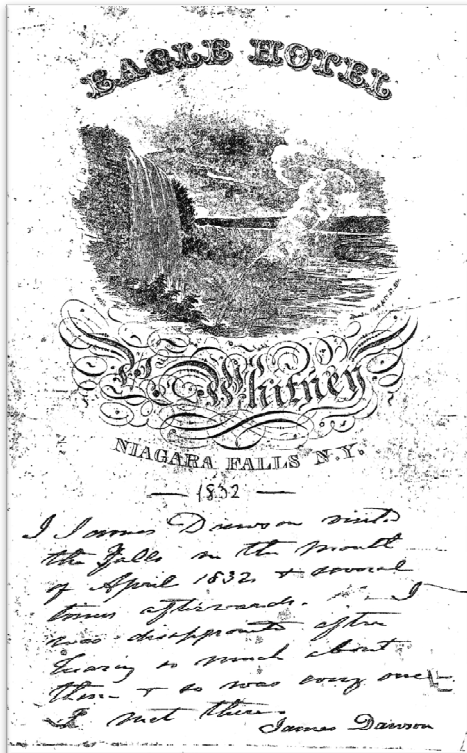 EAGLE HOTEL
P. Whitney
NIAGARA FALLS N.Y.
— 1832 —
I James Dawson visited
the Falls in the month
of April 1832 & several
times afterwards. I
was disappointed after
hearing so much about
them & so was every one
I met there
James Dawson